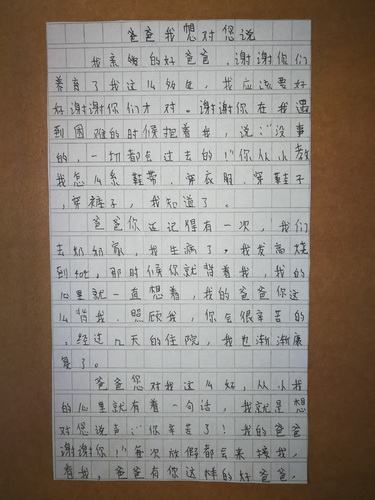 爸爸我想对您说
我亲爱的好爸爸,谢谢你们
养育了我这14多年,我应该要好
好谢谢你们才对。谢谢你在我遇
到困难的时候抱着我,说:“没事
的,一切都会过去的!”你从小教
我怎么系鞋带、穿衣服、穿鞋子
,穿裤子,我知道了。
爸爸你还记得有一次,我们
去奶奶家,我生病了。我发高烧
到40℃,那时候你就背着我,我的
心里就一直想着,我的爸爸你这
么背我、照顾我,你会很辛苦的
,经过几天的住院,我也渐渐康
复了。
爸爸您对我这么好,从小我
的心里就有着一句话,我就是想
对您说声:“你辛苦了!我的爸爸
谢谢你!”每次放假都会来接我,
看我,爸爸有你这样的好爸爸,